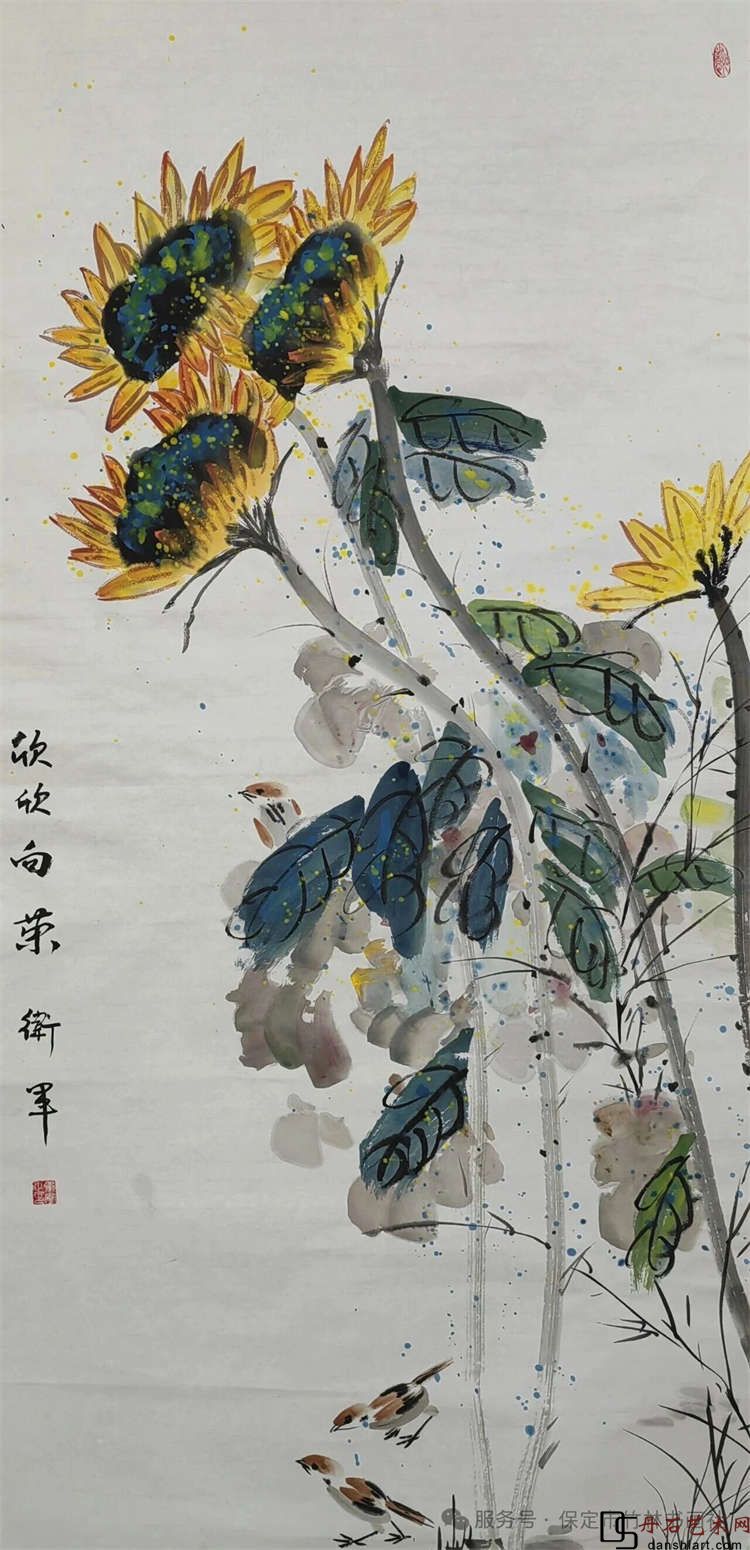 欣欣向荣 衛軍
服务号·保定市竹林书画社
丹石艺术网
danshiart.com